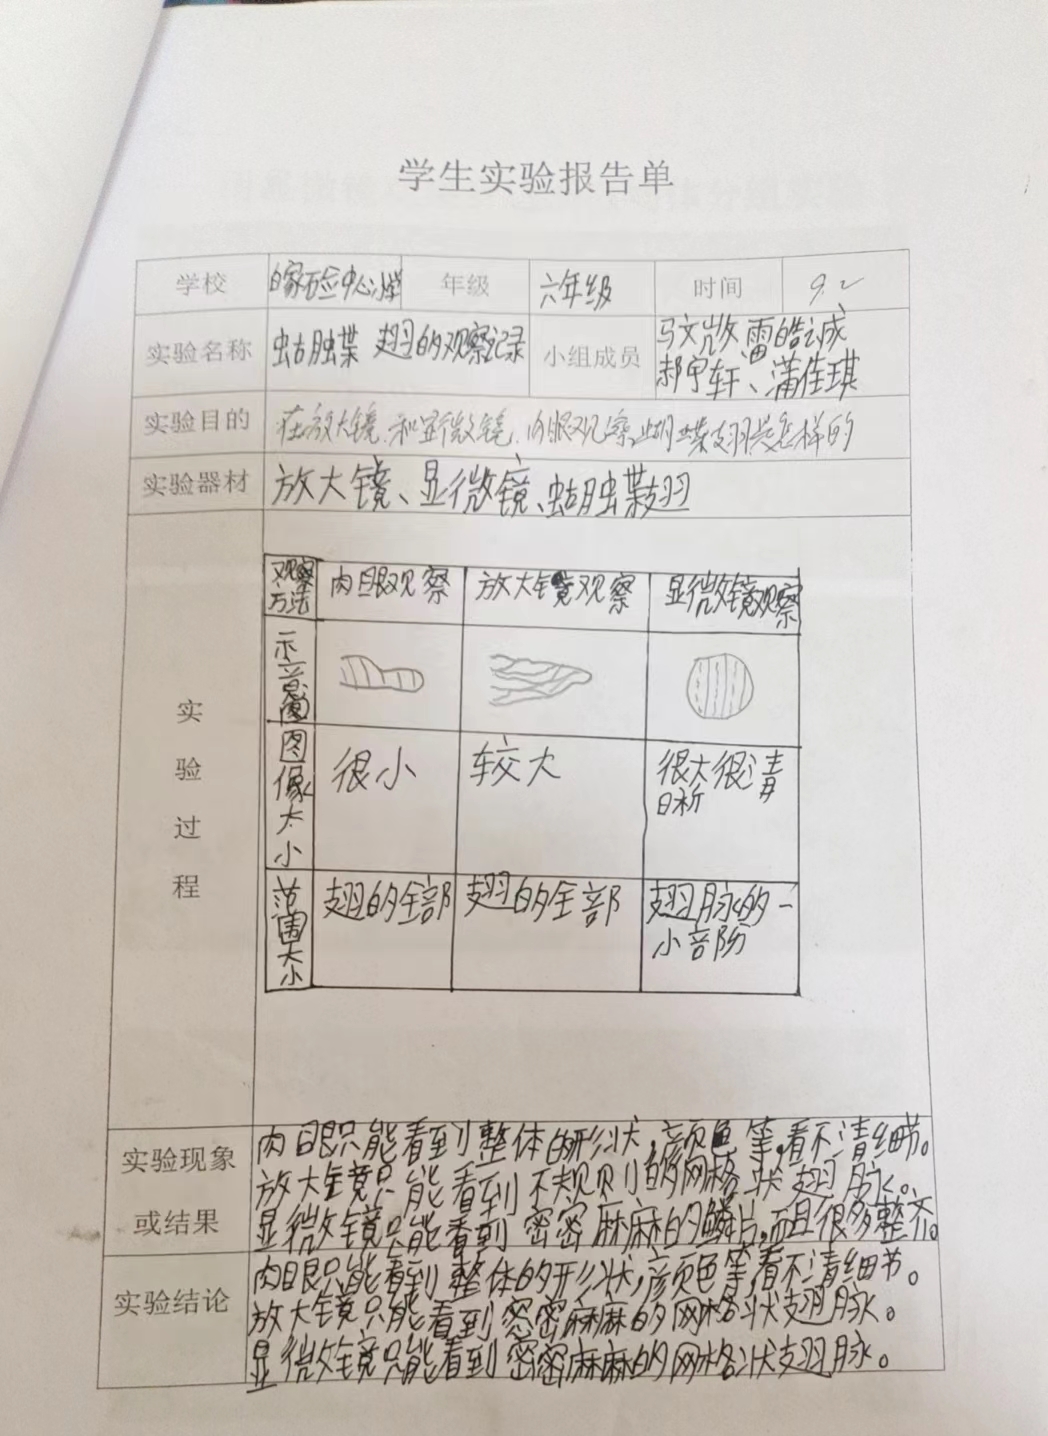 学生实验报告单
学校 白家硷中心小学 年级 六年级 时间 9.2
实验名称 蛄胡蝶 翅的观察记录 小组成员 马文 雷皓诚
郝宇轩、蒲佳琪
实验目的 在放大镜、和显微镜、肉眼观察 蝶翅是怎样的
实验器材 放大镜、显微镜、蝶翅
实验过程
观察方法 肉眼观察 放大镜观察 显微镜观察
示意图
图像大小 很小 较大 很大很清
晰
范围大小 翅的全部 翅的全部 翅脉的一
小部阶
实验现象或结果 肉眼只能看到整体的形状,颜色等,看不清细节。
放大镜只能看到不规则的网格状翅脉。
显微镜只能看到密密麻麻的鳞片,而且很多整齐。
实验结论 肉眼只能看到整体的形状,颜色等,看不清细节。
放大镜只能看到密密麻麻的网格状翅脉。
显微镜只能看到密密麻麻的网格状翅脉。